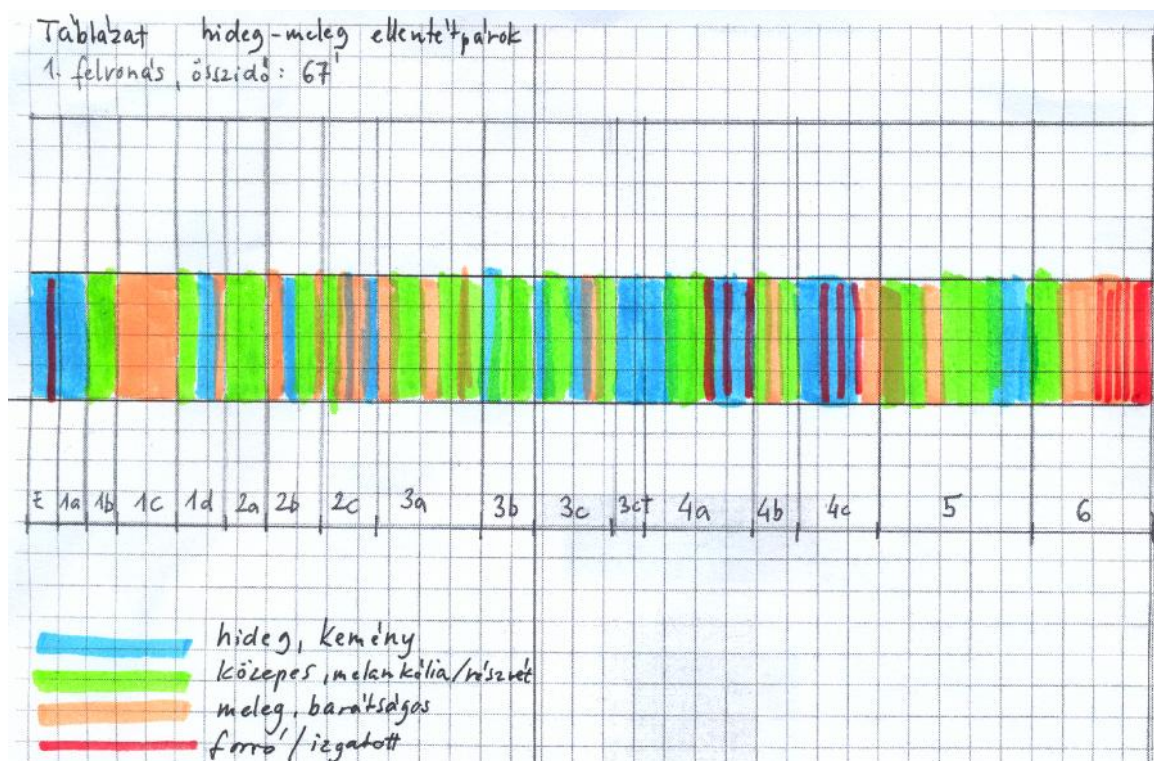 Táblázat hideg-meleg ellentétpárok
1. felvonás, összidő: 67'
E 1a 1b 1c 1d 2a 2b 2c 3a 3b 3c 3c† 4a 4b 4c 5 6
hideg, kemény
közepes, melankólia/részvét
meleg, barátságos
forró / izgatott